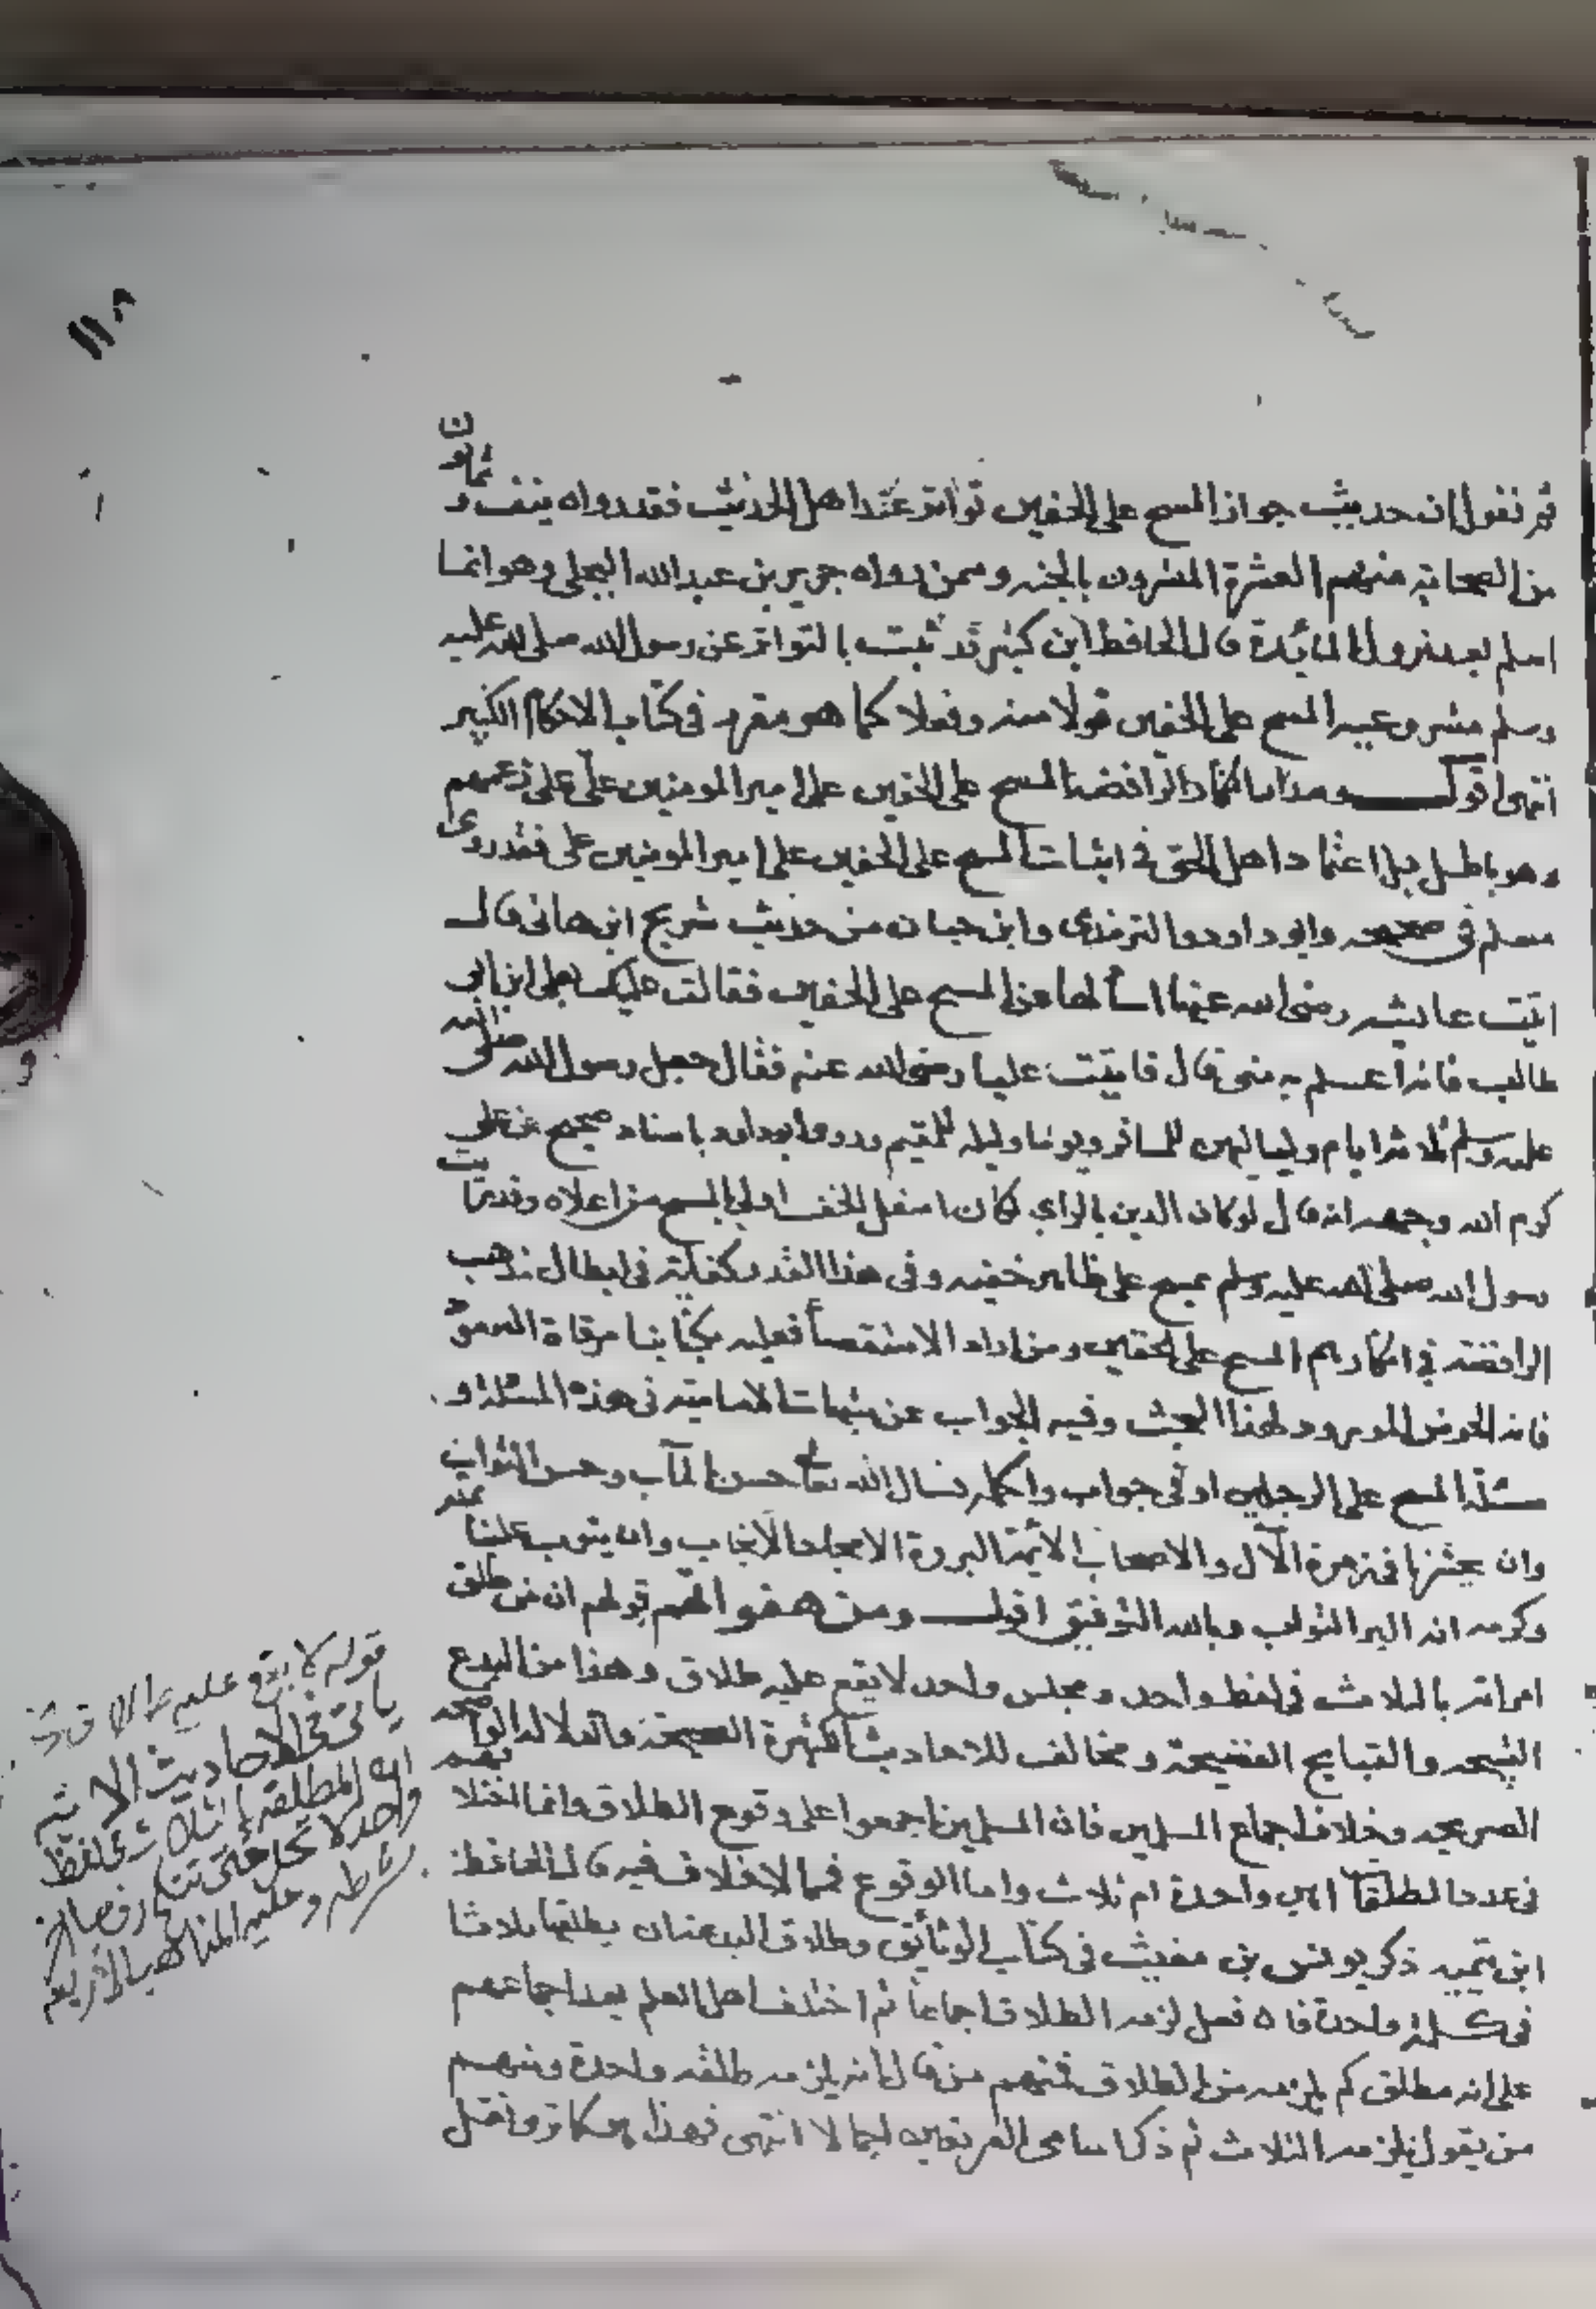 ١١٨
ثم نقول ان حديث جواز المسح على الخفين تواتر عند اهل الحديث فقد رواه ينيف و ثمانون
من الصحابة منهم العشرة المبشرون بالجنه وممن رواه جرير بن عبد الله البجلي وهو انما
اسلم بعد نزول المائدة قال الحافظ ابن كثير قد ثبت بالتواتر عن رسول الله صلى الله عليه
وسلم مشروعيه المسح على الخفين قولا منه وفعلا كما هو مقرر في كتاب الاحكام الكبير
انتهى اقول ومدار انكار الرافضة المسح على الخفين على امير المومنين علي على زعمهم
وهو باطل بل اعتماد اهل الحق في اثبات المسح على الخفين على امير المومنين على فقد روى
مسلم في صحيحه وابو داود والترمذي وابن حبان من حديث شريح ابن هاني قال
اتيت عايشه رضى الله عنها اسألها عن المسح على الخفين فقالت عليك بعلى ابن ابى
طالب فانه اعلم به منى قال فاتيت عليا رضى الله عنه فقال جعل رسول الله صلى الله
عليه وسلم ثلاثة ايام ولياليهن للمسافر ويوما وليله للمقيم وروى ابو داود باسناد صحيح عن على
كرم الله وجهه انه قال لو كان الدين بالراي لكان اسفل الخف اولى بالمسح من اعلاه وقد رايت
رسول الله صلى الله عليه وسلم يمسح على ظاهر خفيه وفى هذا القدر كفاية فى ابطال مذهب
الرافضة في انكارهم المسح على الخفين ومن اراد الاستقصأ فعليه بكتابنا مرقاة الصعود
فانه الحوض المورود لهذا البحث وفيه الجواب عن شبهات الامامية فى هذه المسئلة و
مسئلة المسح على الرجلين اوفى جواب واكمله نسال الله تعا حسن المآب وحسن الثواب
وان يحشرنا في زمرة الآل والاصحاب الأئمة البررة الاجلة الانجاب وان يتوب علينا بمنه
وكرمه انه البر التواب وبالله التوفيق اقول ومن هفواتهم قولهم ان من طلق
امراته بالثلاث فى لفظ واحد ومجلس واحد لا يقع عليه طلاق وهذا من البدع
القبيحه والقبايح الفضيحة ومخالف للاحاديث الكثيرة الصحيحة والدلالة الواضحه
الصريحه وخلاف اجماع المسلمين فان المسلمين اجمعوا على وقوع الطلاق وانما اختلافهم
فى عدد الطلقات اهي واحدة ام ثلاث واما الوقوع فمما لا خلاف فيه قال الحافظ
ابن تيميه ذكر يونس بن مغيث فى كتاب الوثائق وطلاق البدعة ان يطلقها ثلاثا
فى كلمة واحدة فان فعل لزمه الطلاق اجماعا ثم اختلف اهل العلم بعد اجماعهم
على انه مطلق كم يلزمه من الطلاق فمنهم من قال انه يلزمه طلقه واحدة ومنهم
من يقول يلزمه الثلاث ثم ذكر اسامى الفريقين اجمالا انتهى فهذا
قوله لا يقع عليه طلاق
ياتى فى الاحاديث الاتيه
ان المطلقه ثلاث بلفظ
واحد لا تحل حتى تنكح
بشرطه وعليه المذاهب الاربعه